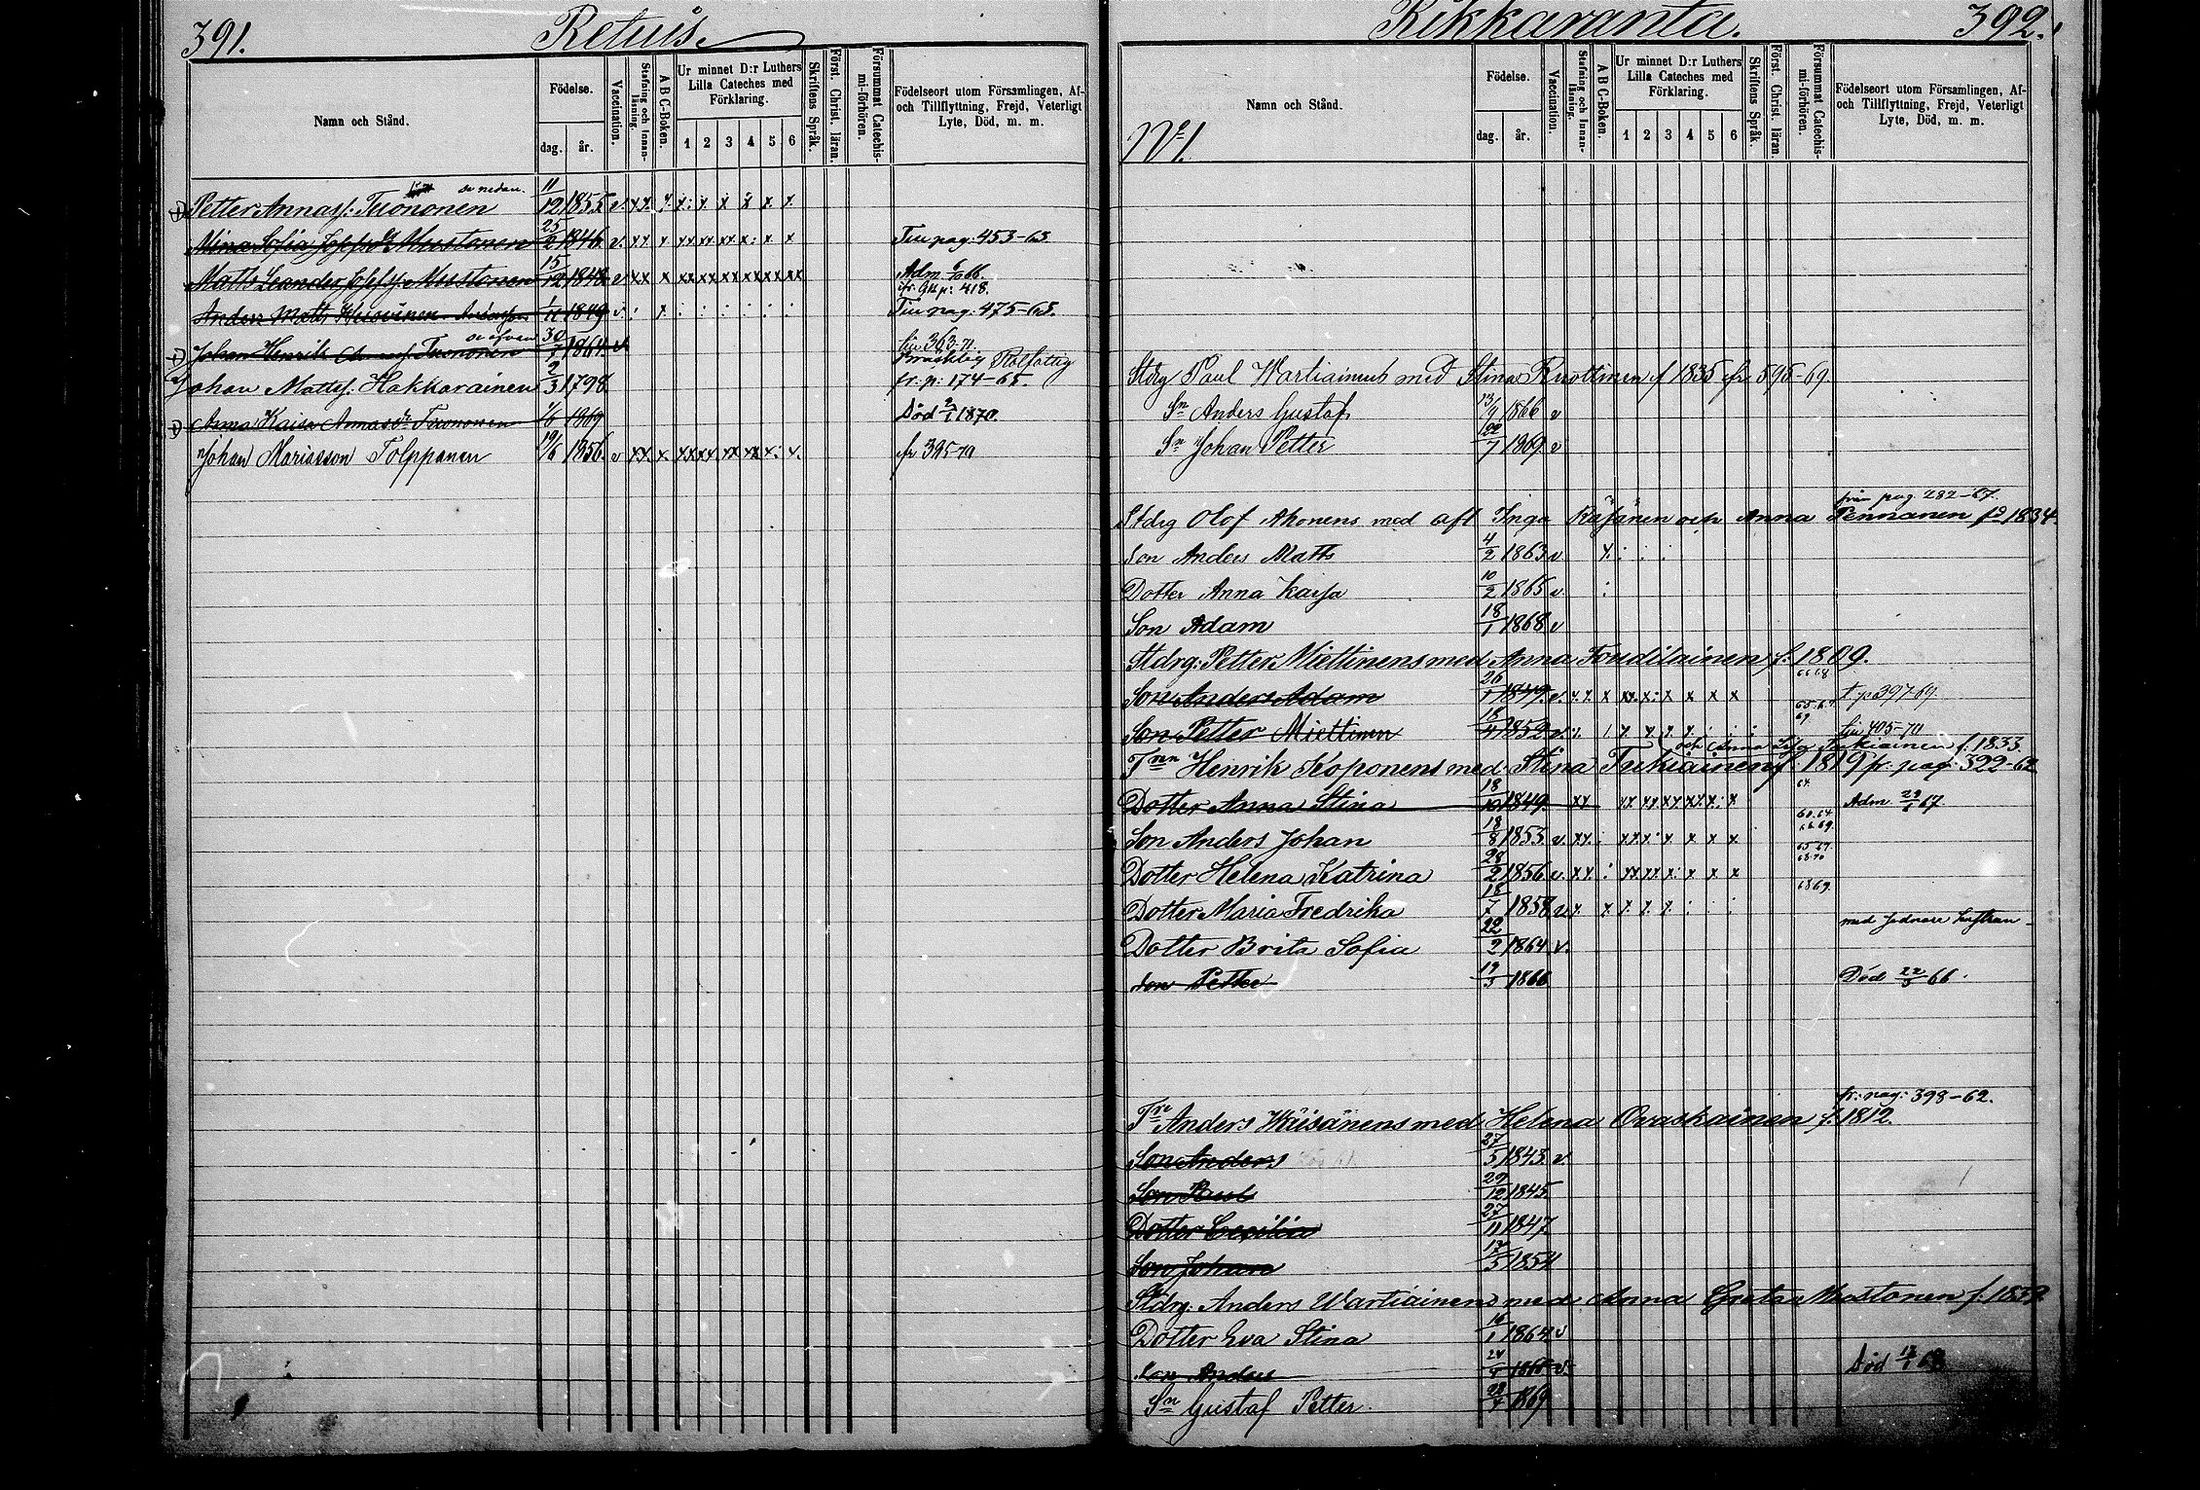 391. Retuis.
Namn och Stånd. Födelse. dag. år. Vaccination. Stafning och Innanläsning. A B C-Boken. Ur minnet D:r Luthers Lilla Cateches med Förklaring. 1 2 3 4 5 6 Skriftens Språk. Först. Christ. läran. Försummat Catechismi-förhören. Födelseort utom Församlingen, Af- och Tillflyttning, Frejd, Veterligt Lyte, Död, m. m.
se nedan.
Petter Annass: Tuononen 11/12 1855 v
Mina Sofia Josefsdr Mustonen 25/2 1846 v. Tiu pag. 453-63.
Matts Leander Josefss: Mustonen 15/12 1848 v Adm. 66.
fr. p: 418.
Anders Matts 1/11 1849 v Tiu pag. 475-63.
Johan Henrik Tuononen 30/7 1861 v
Johan Mattss: Hakkarainen 2/3 1798 fr. p: 174-65.
Anna Kaisa Annasdr Tuononen 1/6 1869 Död 2/1 1870.
Johan Mariasson Tolppanen 19/6 1856 v fr 395-70
Rikkaranta. 392.
Namn och Stånd. Födelse. dag. år. Vaccination. Stafning och Innanläsning. A B C-Boken. Ur minnet D:r Luthers Lilla Cateches med Förklaring. 1 2 3 4 5 6 Skriftens Språk. Först. Christ. läran. Försummat Catechismi-förhören. Födelseort utom Församlingen, Af- och Tillflyttning, Frejd, Veterligt Lyte, Död, m. m.
No 1.
Stdrg Paul Wartiainens med Stina Ruottinen f 1835 fr 596-69.
Sn Anders Gustaf 13/9 1866 v
Sn Johan Petter 22/7 1869 v
från pag. 282-67.
Stdrg Olof Ahonens med afl Inga Räsänen och Anna Pennanen fd 1834
Son Anders Matts 4/2 1863 v
Dotter Anna Kaisa 10/2 1865 v
Son Adam 18/1 1868 v
Stdrg: Petter Miettinens med Anna Toudilainen f. 1809.
Son Anders Adam 26/1 1849 v. t. p 397-69.
Son Petter Miettinen 18/4 1852 v. 405-70
och Anna Tukiainen f. 1833.
Henrik Koponens med Stina Tukiainen f 1819 fr: pag: 322-62
Dotter Anna Stina 18/10 1849 Adm. 67.
Son Anders Johan 18/8 1853 v.
Dotter Helena Katrina 28/2 1856 v.
Dotter Maria Fredrika 18/7 1858 v.
med
Dotter Brita Sofia 22/2 1864 v.
Son Petter 19/3 1866 Död 22/3 66.
fr: pag: 398-62.
Anders Wäisänens med Helena Ovaskainen f. 1812.
Son Anders 27/5 1843 v.
Son Paul 29/12 1845
Dotter Cecilia 27/11 1847
Son Johan 1854
Stdrg: Anders Wartiainens med Anna Greta Mustonen
Dotter Eva Stina 1864 v
Son Anders v. Död
Sn Gustaf Petter 1869